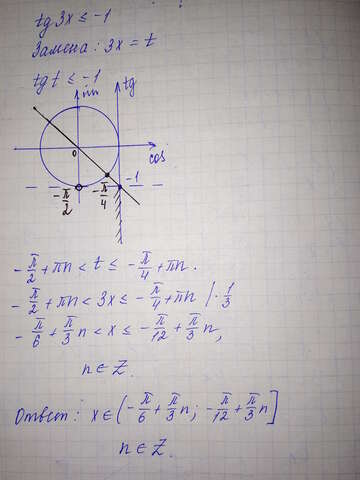 tg 3x ≤ -1
Замена: 3x = t
tg t ≤ -1
sin
tg
0
cos
-1
-π/2
-π/4
-π/2 + πn < t ≤ -π/4 + πn.
-π/2 + πn < 3x ≤ -π/4 + πn | · 1/3
-π/6 + π/3 n < x ≤ -π/12 + π/3 n,
n ∈ Z.
Ответ: x ∈ (-π/6 + π/3 n; -π/12 + π/3 n]
n ∈ Z.